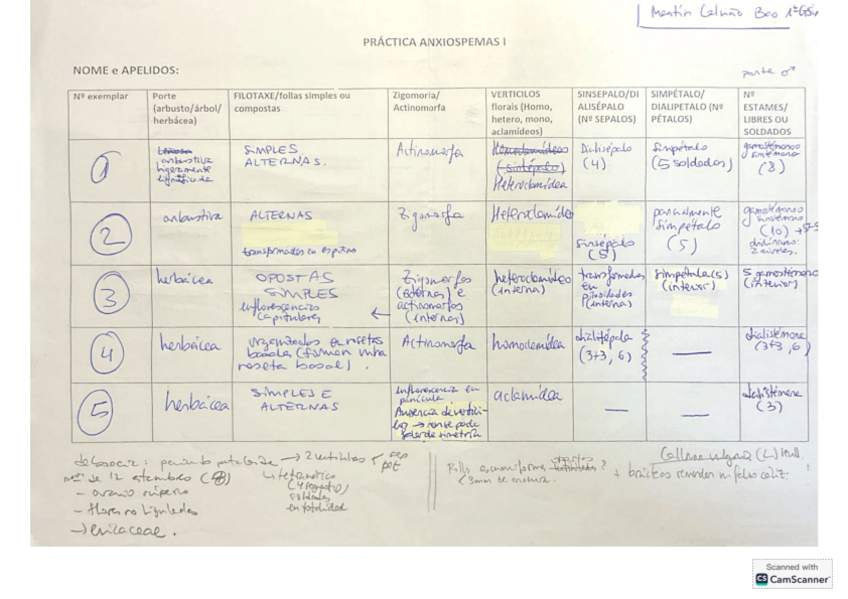 PRÁCTICA ANXIOSPEMAS I
NOME e APELIDOS:
parte ♂
Nº exemplar
Porte (arbusto/árbol/ herbácea)
FILOTAXE/follas simples ou compostas
Zigomoria/ Actinomorfa
VERTICILOS florais (Homo, hetero, mono, aclamídeos)
SINSEPALO/DI ALISÉPALO (Nº SEPALOS)
SIMPÉTALO/ DIALIPETALO (Nº PÉTALOS)
Nº ESTAMES/ LIBRES OU SOLDADOS
1
arbustiva
ligeramente
SIMPLES
ALTERNAS.
Actinomorfa
Heteroclamídea
Dialisépalo
(4)
Simpétalo
(5 soldados)
gamostémono
(8)
2
arbustiva
ALTERNAS
transformadas en espiñas
Zigomorfa
Heteroclamídeo
sinsépalo
(5)
parcialmente
simpétalo
(5)
gamostémono
(10)
3
herbácea
OPOSTAS
SIMPLES
inflorescencias
capitulares
Zigomorfos
(externas) e
actinomorfos
(internas)
heteroclamídeo
(interna)
transformados
en
pilosidades
(interna)
simpétala (5)
(interior)
5 gamostémono
(interior)
4
herbácea
organizadas en rosetas
basales (forman unha
roseta basal).
Actinomorfa
homoclamídea
dialitépala
(3+3, 6)
—
dialistémone
(3+3, 6)
5
herbácea
SIMPLES E
ALTERNAS
Inflorescencia en
panícula
Ausencia de vertici-
los → non se pode
falar de simetría
aclamídea
—
—
dialistémone
(3)
→ 2 verticilos
de 12 estambres (8)
- ovario súpero
- flores no liguladas
→ ericaceae.
→ tetrámero
soldados
en totalidad
Calluna vulgaris (L.) Hull.
Scanned with
CS CamScanner